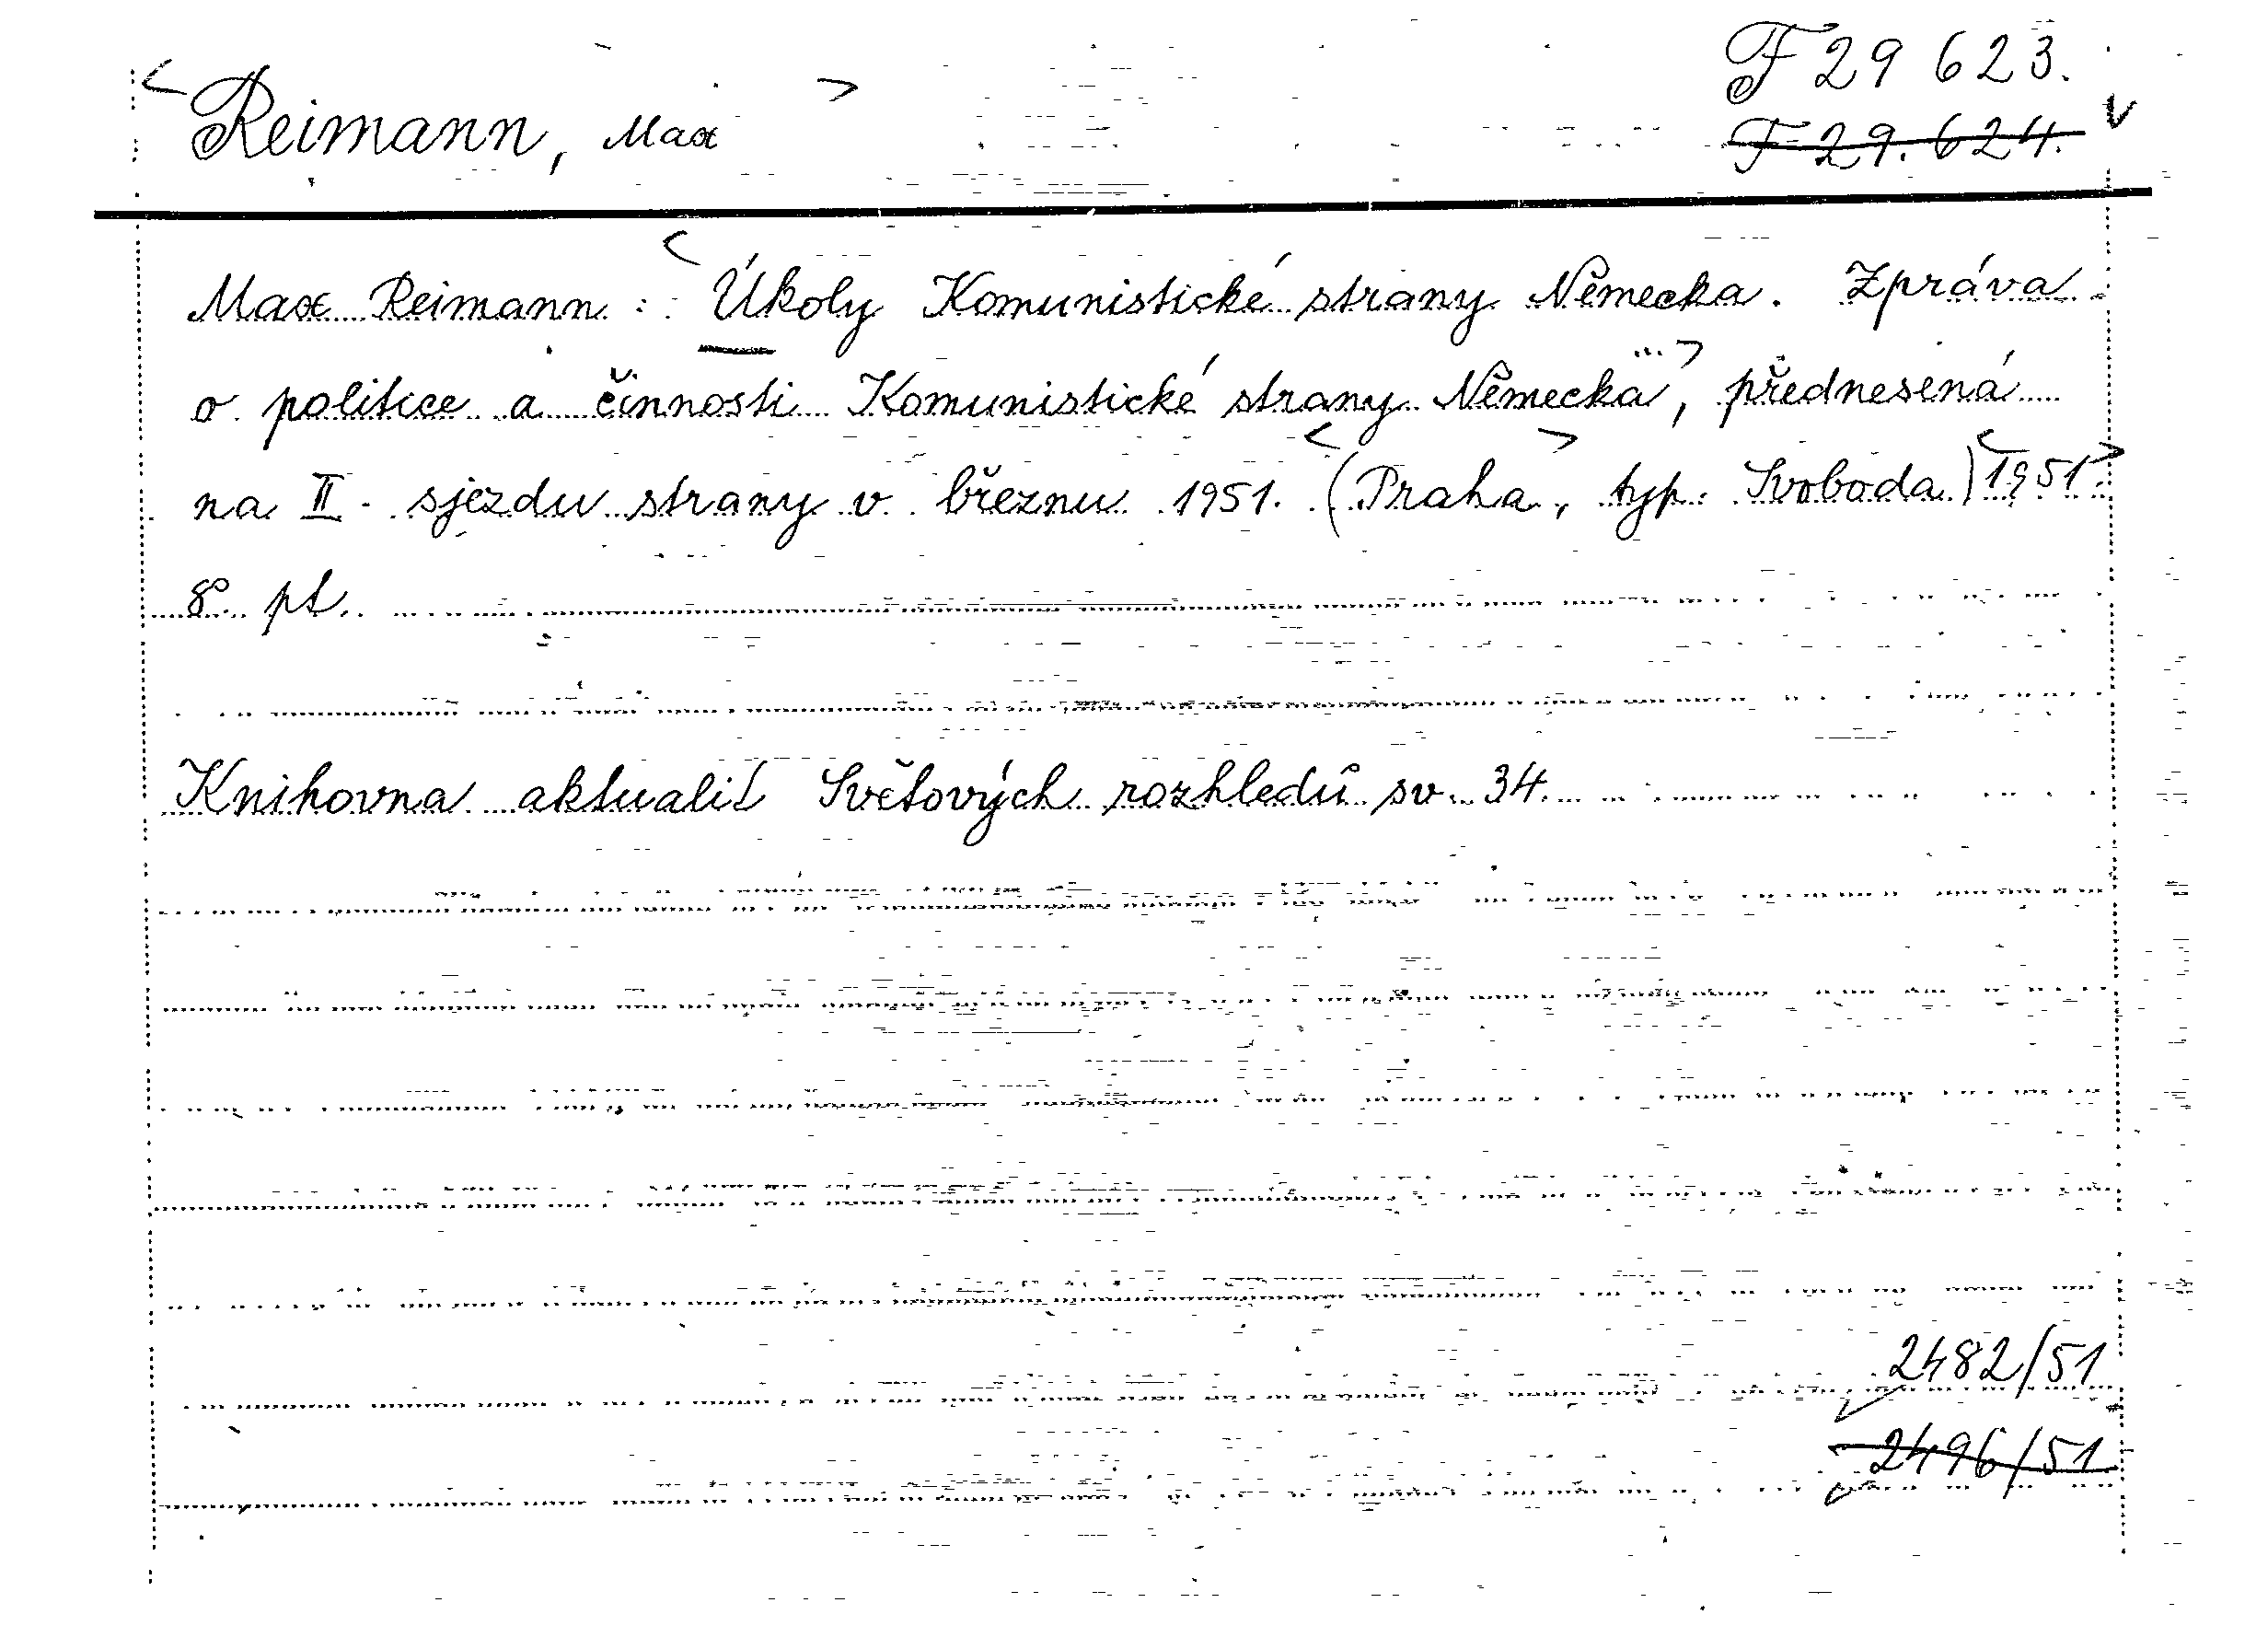 F 29 623.
Reimann, Max
F 29. 624.
Max Reimann : Úkoly Komunistické strany Německa. Zpráva
o politice a činnosti Komunistické strany Německa, přednesená
na II. sjezdu strany v březnu 1951. (Praha, typ. Svoboda) 1951.
8° pt.
Knihovna aktualit Světových rozhledů sv. 34.
2482/51
2496/51